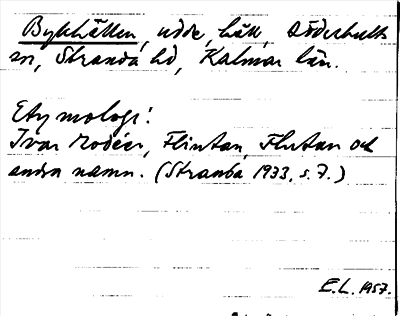 Bykhällen, udde, häll, Döderhults
sn, Stranda hd, Kalmar län.
Etymologi:
Ivar Modéer, Flintan, Flutan och
andra namn. (Stranda 1933, s. 7.)
E.L. 1957.